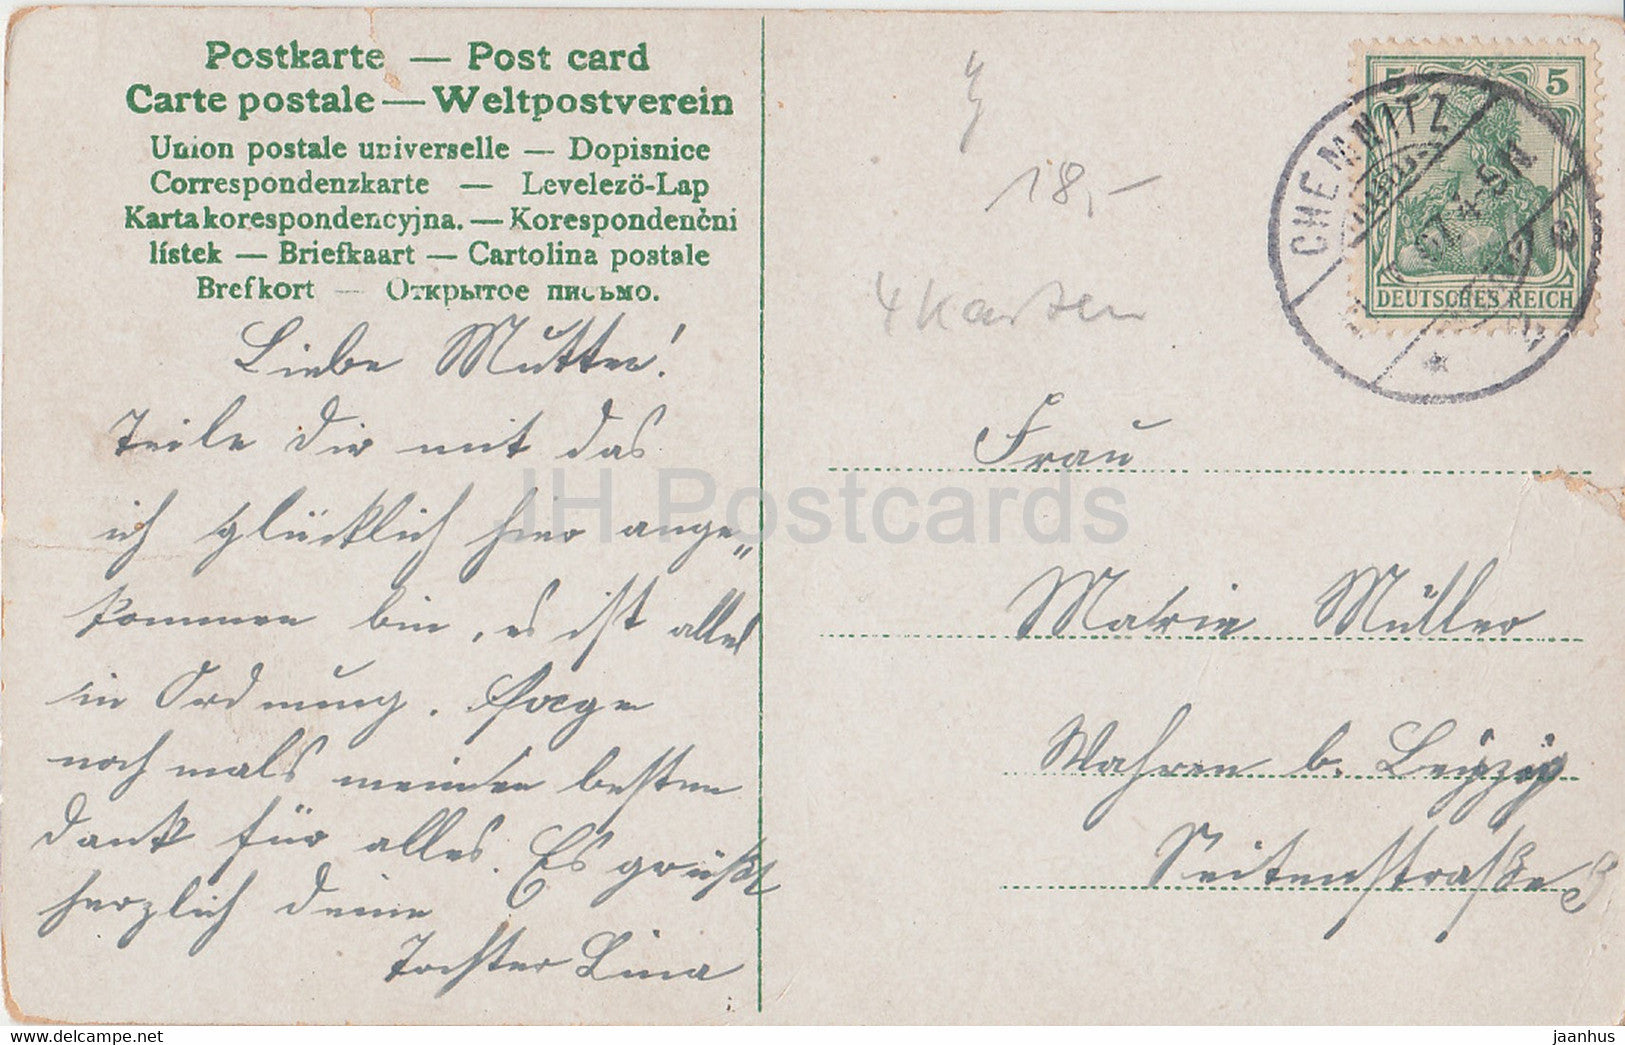 Postkarte — Post card
Carte postale — Weltpostverein
Union postale universelle — Dopisnice
Correspondenzkarte — Levelező-Lap
Karta korespondencyjna. — Korespondenční
lístek — Briefkaart — Cartolina postale
Brefkort — Открытое письмо.
Liebe Mutter!
Teile Dir mit das
ich glücklich hier ange„
kommen bin, es ist alles
in Ordnung. Sage
noch mals meinen besten
Dank für alles. Es grüßt
herzlich deine
Tochter Lina
18,-
4 Karten
5 5
DEUTSCHES REICH
CHEMNITZ
Frau
Marie Müller
Wahren b. Leipzig
Seitenstraße
IH Postcards
https://www.hippostcard.com
jaanhus